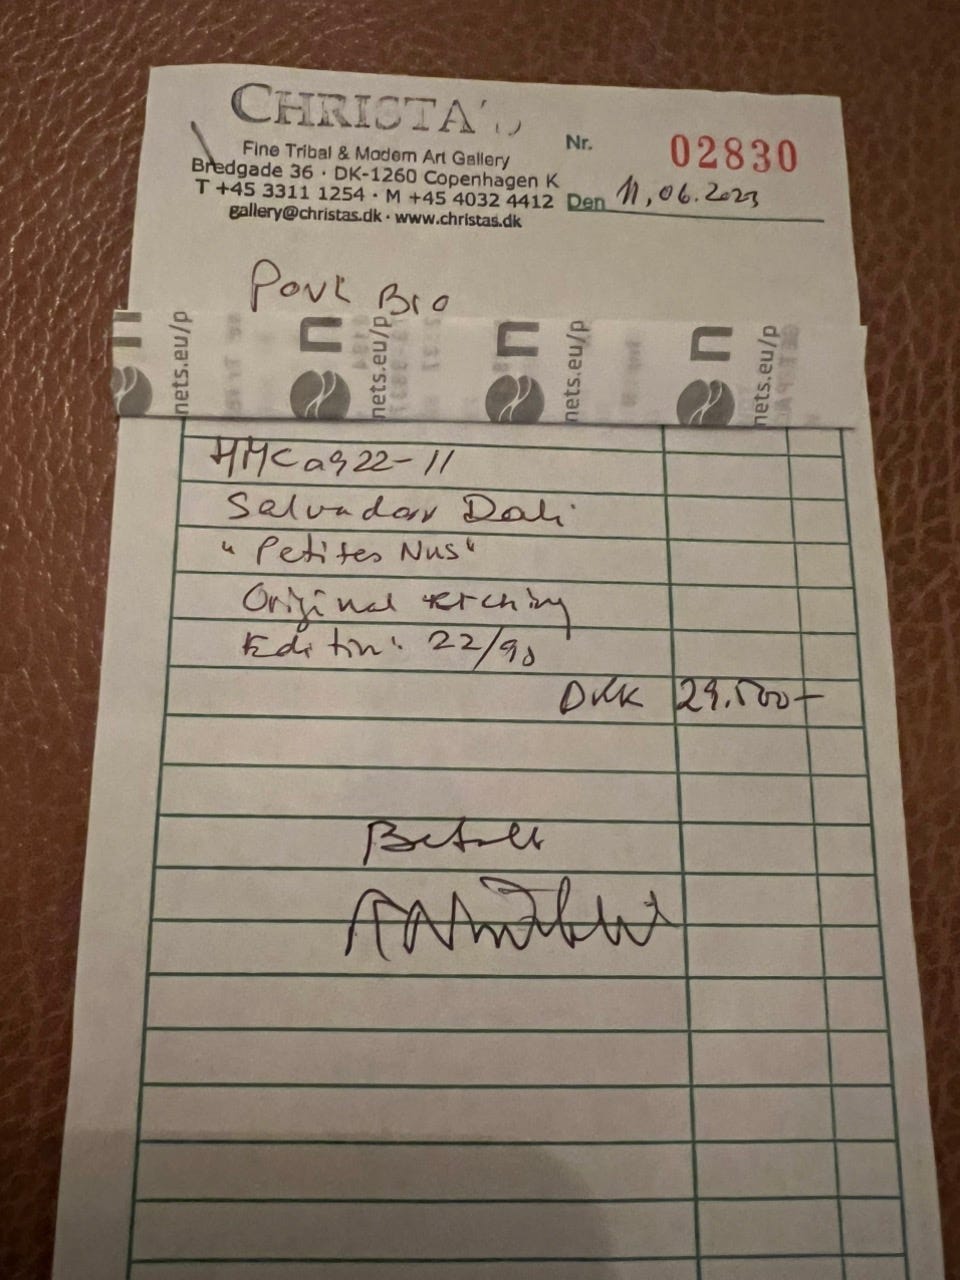 CHRISTA'S
Fine Tribal & Modern Art Gallery
Bredgade 36 · DK-1260 Copenhagen K
T +45 3311 1254 · M +45 4032 4412
gallery@christas.dk · www.christas.dk
Nr. 02830
Den 11.06.2023
nets.eu/p nets.eu/p nets.eu/p nets.eu/p
22-11
Salvador Dali
"Petites Nus"
Original etching
Edition: 22/90
DKK 29.500-
Betalt